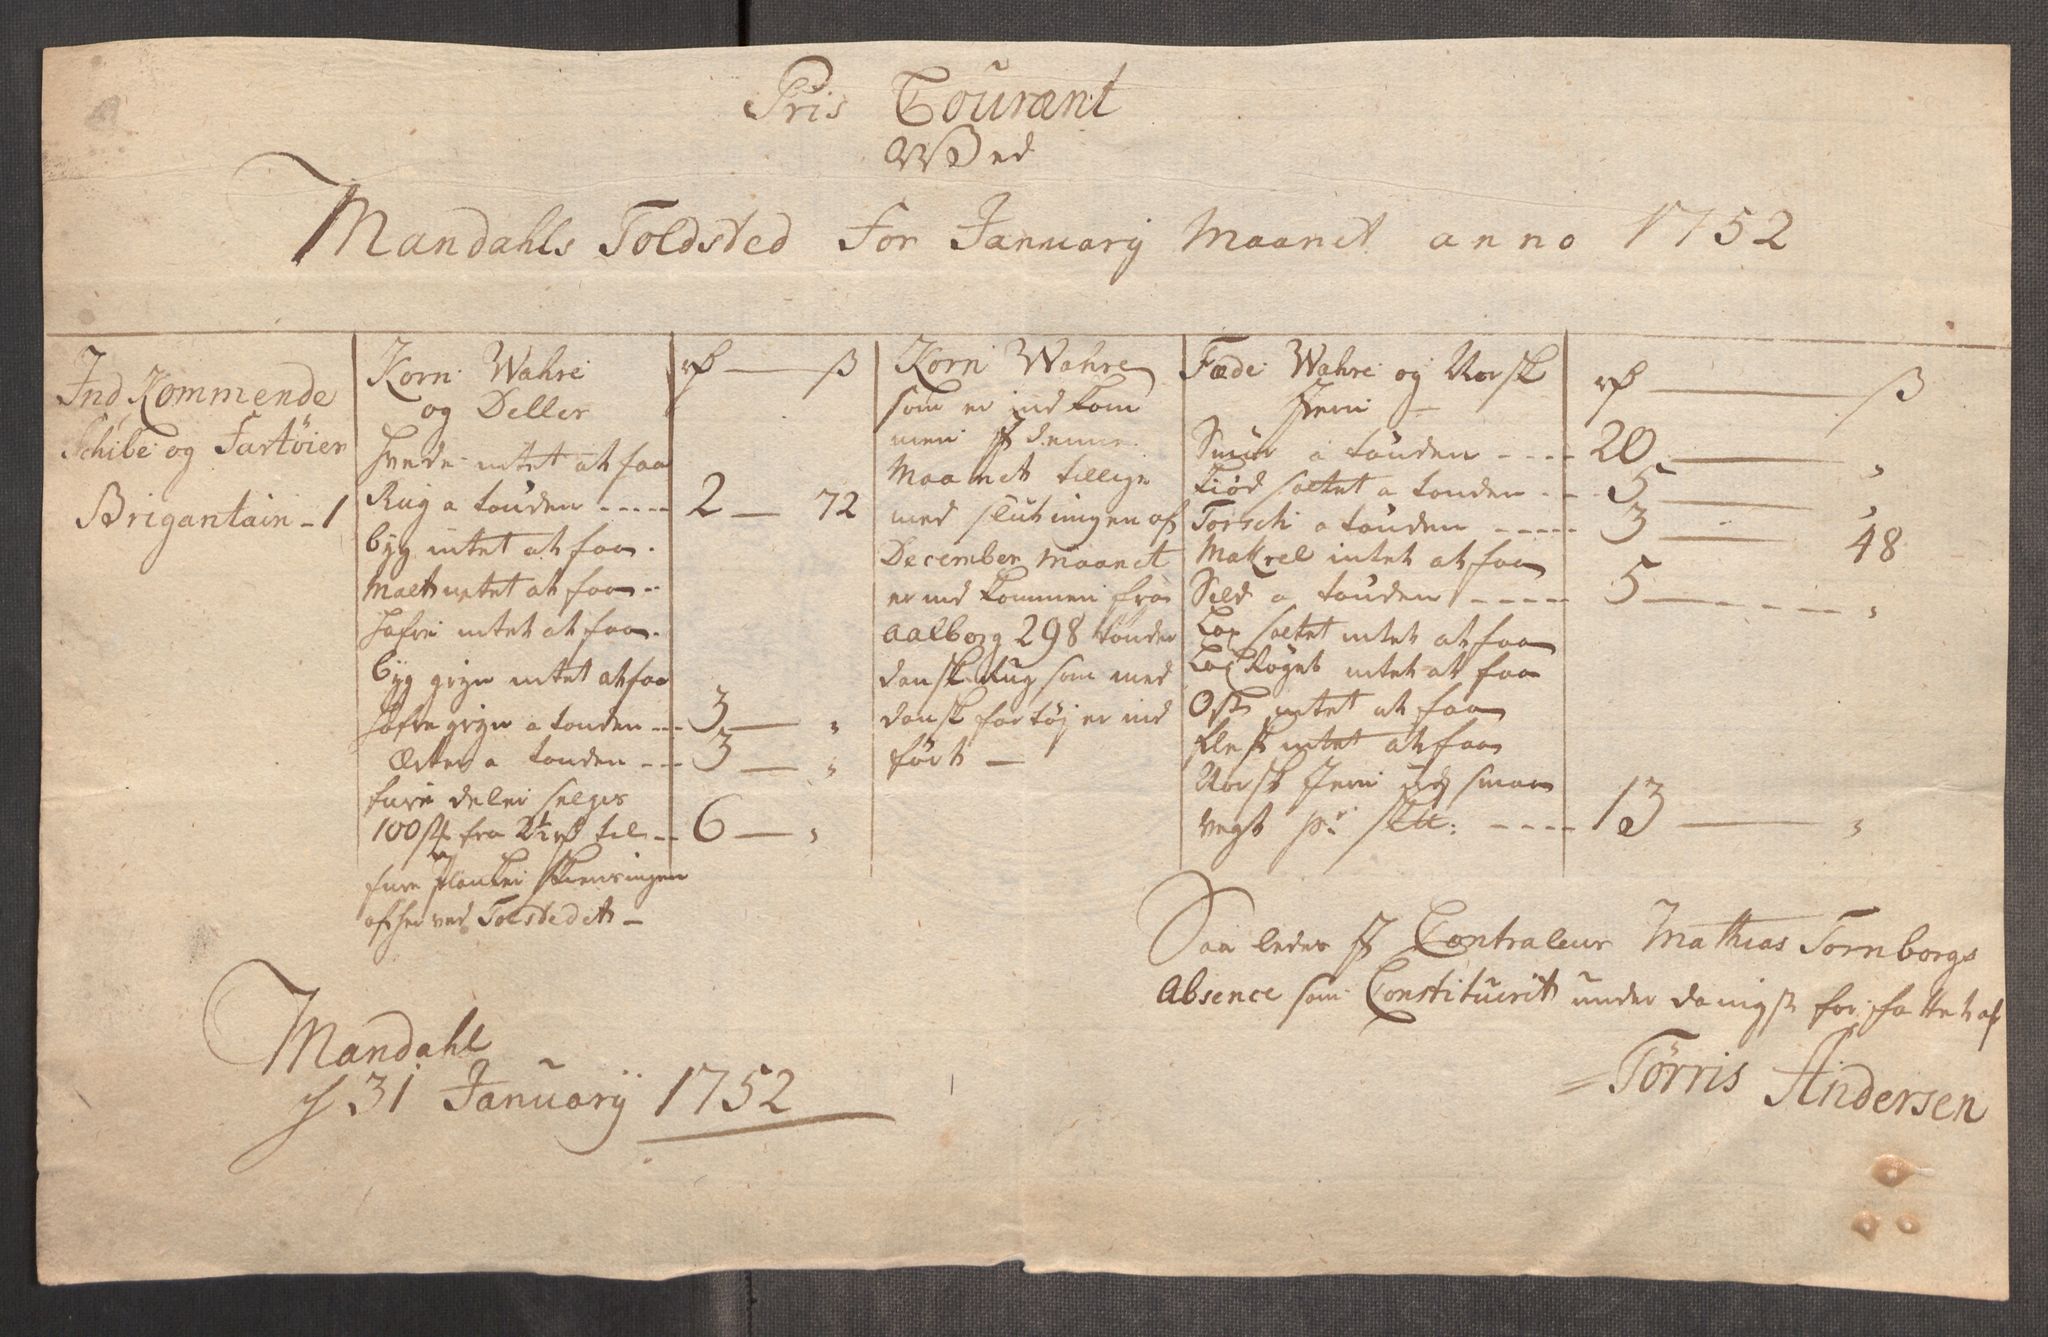 Pris Courant
Wed
Mandahls Toldsted for Januarij Maanet anno 1752
Ind Kommende
Schibe og Fartöier
Brigantain - 1
Korn Wahre
og Deller
hvede intet at faa
Rug a tønden ----- 2 — 72
byg intet at faa
Malt intet at faa
hafre intet at faa
byg gryn intet at faa
hafre gryn a tønden --- 3 — "
Ærter a tønden --- 3 — "
fure deler selges
100 st fra 2½ rd til -- 6 — "
fure Planker
af her ved Tolstedet —
rd — ß
Korn Wahre
som er ind kom
men i denne
Maanet tillige
med slutningen af
December maanet
er ind kommen fra
Aalborg 298 tønder
dansk Rug som med
dansk fartøj er ind
ført —
Fæde Wahre og Norsk
Jern
rd — ß
Smør a tønden ---- 20 — "
kiød saltet a tønden --- 5 — "
Torsck a tønden ----- 3 — 48
Makrel intet at faa
Sild a tønden ----- 5 — "
Lax saltet intet at faa
Lax Røget intet at faa
Ost intet at faa
flesk intet at faa
Norsk Jern udj smaa
vegt pr sk℔: ---- 13 — "
Saaledes i Contraleur Mathias Tornborgs
Absence som Constituerit under danigst forfattet af
Törris Andersen
Mandahl
d 31 Januarij 1752